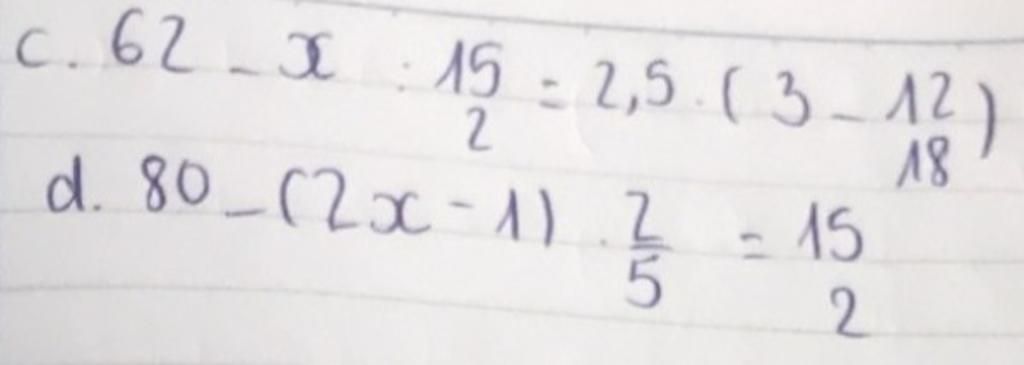 c. 62 - x : 15/2 = 2,5 . ( 3 - 12/18 )
d. 80 - (2x - 1) . 2/5 = 15/2